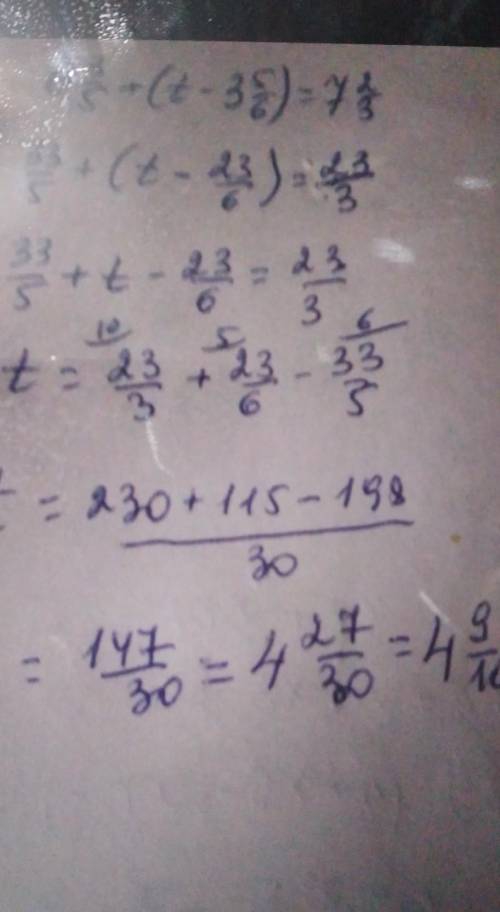 5 + (t - 3 5/6) = 7 2/3
33/5 + (t - 23/6) = 23/3
33/5 + t - 23/6 = 23/3
10 5 6
t = 23/3 + 23/6 - 33/5
= 230 + 115 - 198 / 30
= 147/30 = 4 27/30 = 4 9/10